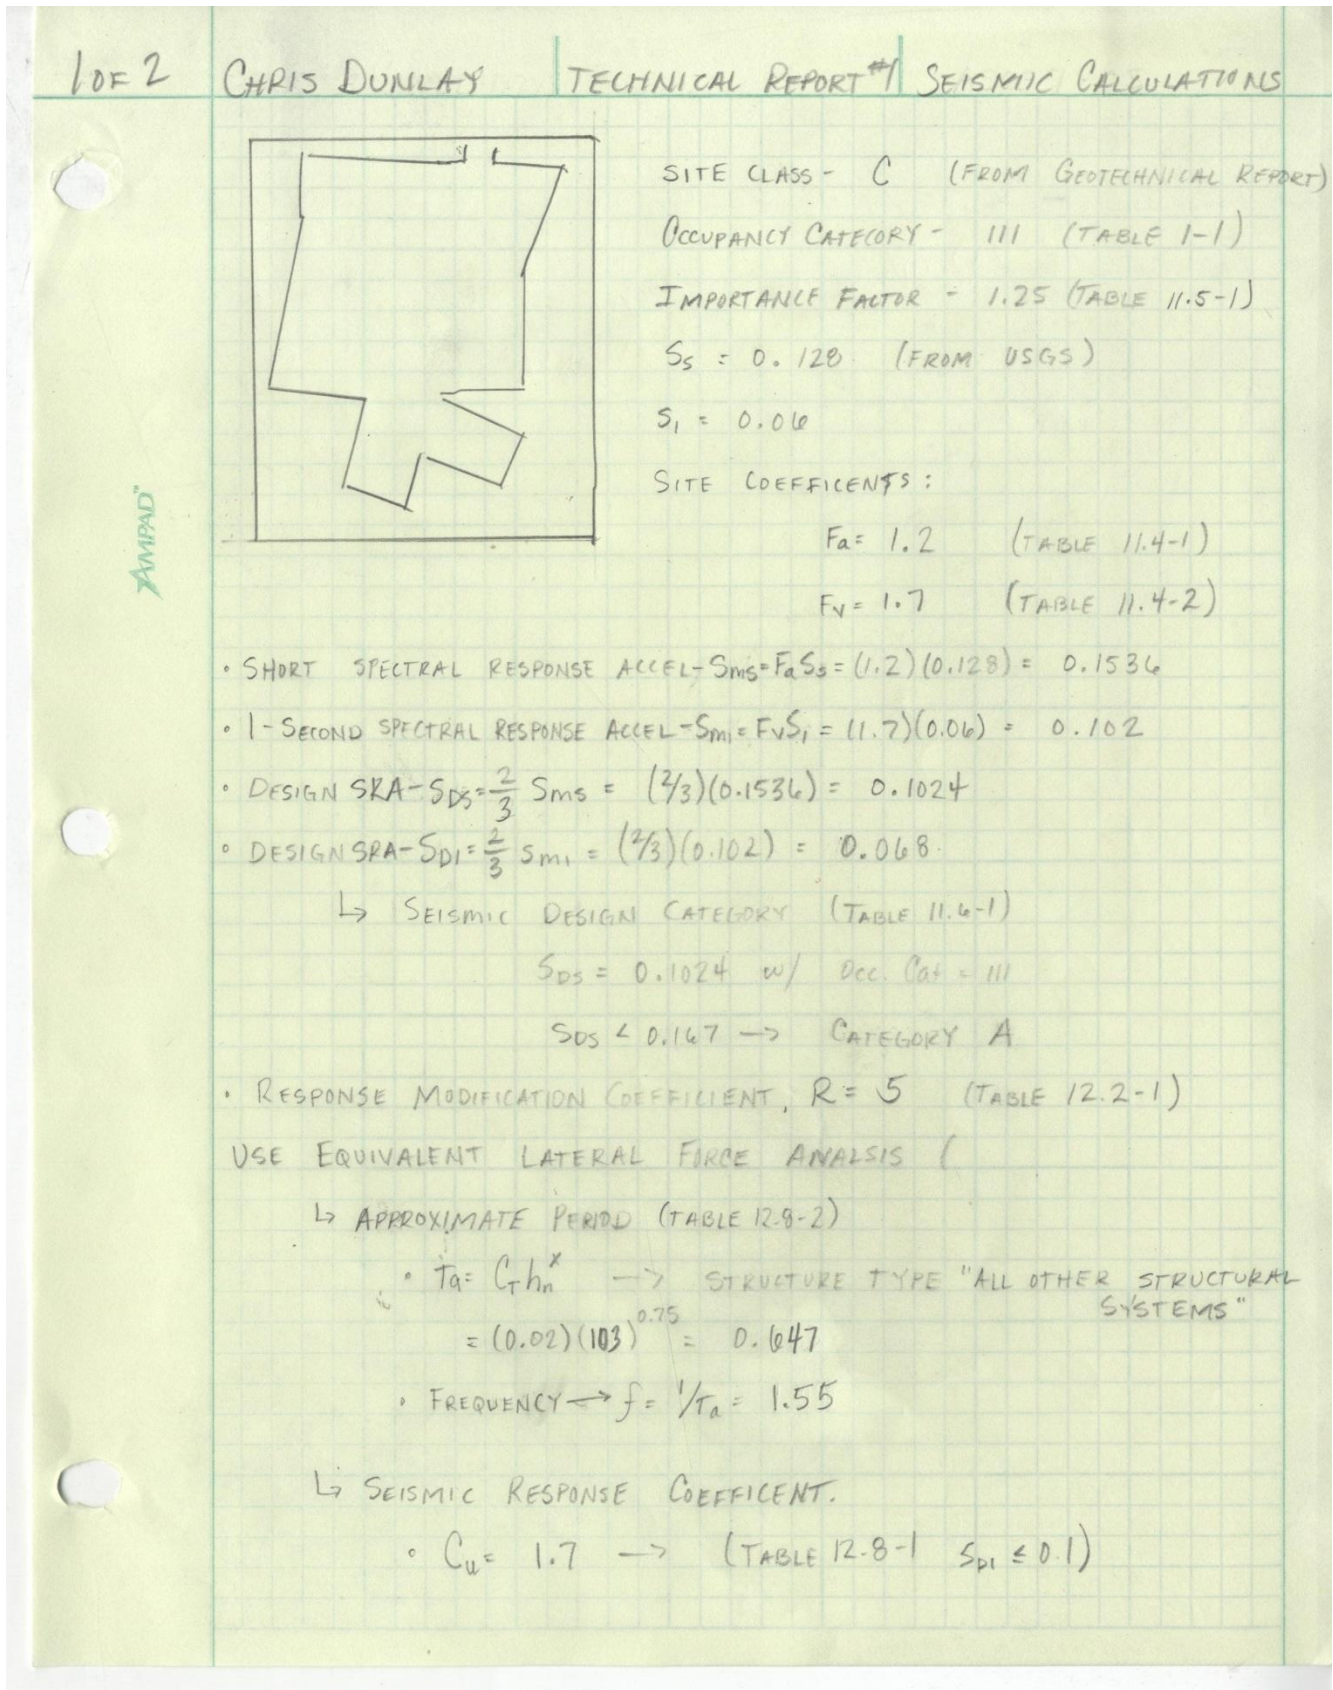 1 OF 2 CHRIS DUNLAY TECHNICAL REPORT #1 SEISMIC CALCULATIONS
SITE CLASS - C (FROM GEOTECHNICAL REPORT)
OCCUPANCY CATEGORY - III (TABLE 1-1)
IMPORTANCE FACTOR - 1.25 (TABLE 11.5-1)
Ss = 0.128 (FROM USGS)
S1 = 0.06
SITE COEFFICENTS:
Fa = 1.2 (TABLE 11.4-1)
Fv = 1.7 (TABLE 11.4-2)
AMPAD™
• SHORT SPECTRAL RESPONSE ACCEL - Sms = FaSs = (1.2)(0.128) = 0.1536
• 1-SECOND SPECTRAL RESPONSE ACCEL - Sm1 = FvS1 = (1.7)(0.06) = 0.102
• DESIGN SRA - SDS = 2/3 Sms = (2/3)(0.1536) = 0.1024
• DESIGN SRA - SD1 = 2/3 Sm1 = (2/3)(0.102) = 0.068
↳ SEISMIC DESIGN CATEGORY (TABLE 11.6-1)
SDS = 0.1024 w/ Occ. Cat = III
SDS < 0.167 → CATEGORY A
• RESPONSE MODIFICATION COEFFICIENT, R = 5 (TABLE 12.2-1)
USE EQUIVALENT LATERAL FORCE ANALSIS (
↳ APPROXIMATE PERIOD (TABLE 12.8-2)
• Ta = CT hn^x → STRUCTURE TYPE "ALL OTHER STRUCTURAL
SYSTEMS"
= (0.02)(103)^0.75 = 0.647
• FREQUENCY → f = 1/Ta = 1.55
↳ SEISMIC RESPONSE COEFFICENT.
• Cu = 1.7 → (TABLE 12.8-1 SD1 ≤ 0.1)